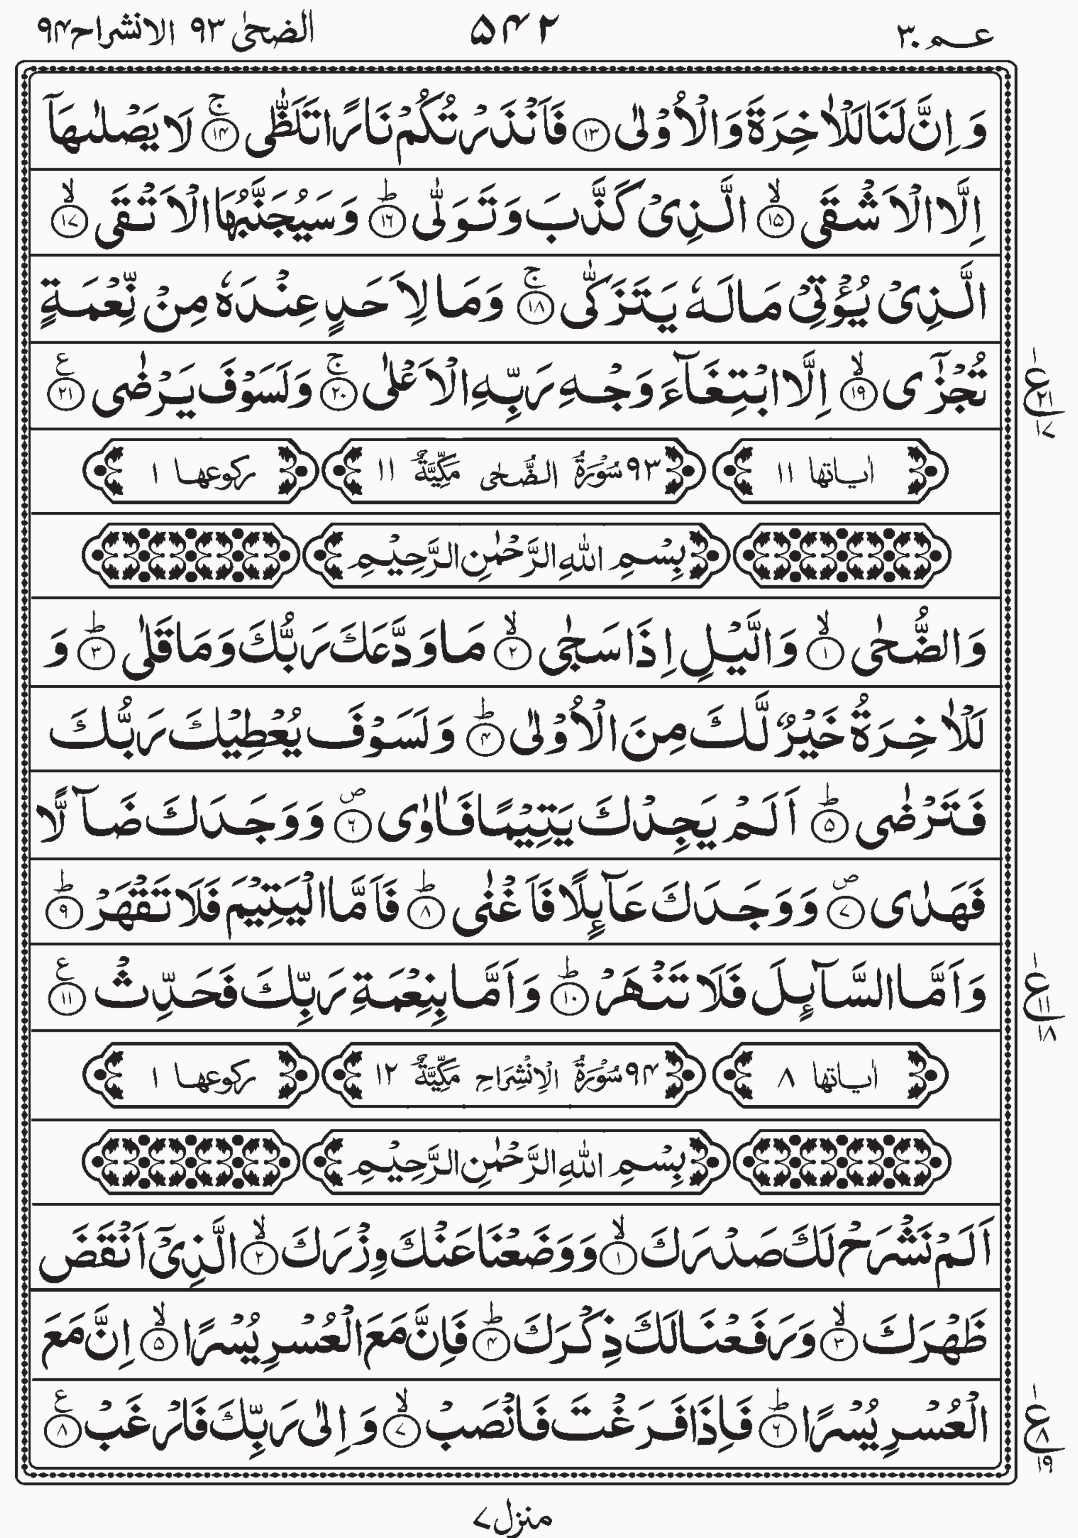 عـم ٣٠ ۵۴۲ الضحىٰ ٩٣ الانشراح ٩۴
وَاِنَّ لَنَا لَلْاٰخِرَةَ وَالْاُوْلٰى ۝١٣ فَاَنْذَرْتُكُمْ نَارًا تَلَظّٰى ۝١۴ۚ لَا يَصْلٰىهَاۤ
اِلَّا الْاَشْقَى ۝١۵ۙ الَّذِىْ كَذَّبَ وَتَوَلّٰى ۝١٦ؕ وَسَيُجَنَّبُهَا الْاَتْقَى ۝١٧ۙ
الَّذِىْ يُؤْتِىْ مَالَهٗ يَتَزَكّٰى ۝١٨ۚ وَمَا لِاَحَدٍ عِنْدَهٗ مِنْ نِّعْمَةٍ
تُجْزٰٓى ۝١٩ۙ اِلَّا ابْتِغَآءَ وَجْهِ رَبِّهِ الْاَعْلٰى ۝٢٠ۚ وَلَسَوْفَ يَرْضٰى ۝٢١ع
١ ع ٢١ ١٧
اٰياتها ١١ ٩٣ سُوْرَةُ الضُّحٰى مَكِّيَّةٌ ١١ ركوعها ١
بِسْمِ اللّٰهِ الرَّحْمٰنِ الرَّحِيْمِ
وَالضُّحٰى ۝١ۙ وَالَّيْلِ اِذَا سَجٰى ۝٢ۙ مَا وَدَّعَكَ رَبُّكَ وَمَا قَلٰى ۝٣ؕ وَ
لَلْاٰخِرَةُ خَيْرٌ لَّكَ مِنَ الْاُوْلٰى ۝۴ؕ وَلَسَوْفَ يُعْطِيْكَ رَبُّكَ
فَتَرْضٰى ۝۵ؕ اَلَمْ يَجِدْكَ يَتِيْمًا فَاٰوٰى ۝٦ص وَوَجَدَكَ ضَآلًّا
فَهَدٰى ۝٧ص وَوَجَدَكَ عَآئِلًا فَاَغْنٰى ۝٨ؕ فَاَمَّا الْيَتِيْمَ فَلَا تَقْهَرْ ۝٩ؕ
وَاَمَّا السَّآئِلَ فَلَا تَنْهَرْ ۝١٠ؕ وَاَمَّا بِنِعْمَةِ رَبِّكَ فَحَدِّثْ ۝١١ع
١ ع ١١ ١٨
اٰياتها ٨ ٩۴ سُوْرَةُ الْاِنْشِرَاحِ مَكِّيَّةٌ ١٢ ركوعها ١
بِسْمِ اللّٰهِ الرَّحْمٰنِ الرَّحِيْمِ
اَلَمْ نَشْرَحْ لَكَ صَدْرَكَ ۝١ۙ وَوَضَعْنَا عَنْكَ وِزْرَكَ ۝٢ۙ الَّذِىْۤ اَنْقَضَ
ظَهْرَكَ ۝٣ۙ وَرَفَعْنَا لَكَ ذِكْرَكَ ۝۴ؕ فَاِنَّ مَعَ الْعُسْرِ يُسْرًا ۝۵ۙ اِنَّ مَعَ
الْعُسْرِ يُسْرًا ۝٦ؕ فَاِذَا فَرَغْتَ فَانْصَبْ ۝٧ۙ وَاِلٰى رَبِّكَ فَارْغَبْ ۝٨ع
١ ع ٨ ١٩
منزل ٧